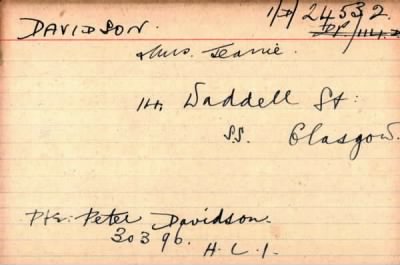 DAVIDSON. 1/D/24532.
Mrs. Jeanie.
14, Waddell St:
S.S. Glasgow.
Pte. Peter Davidson.
30396. H.L.I.